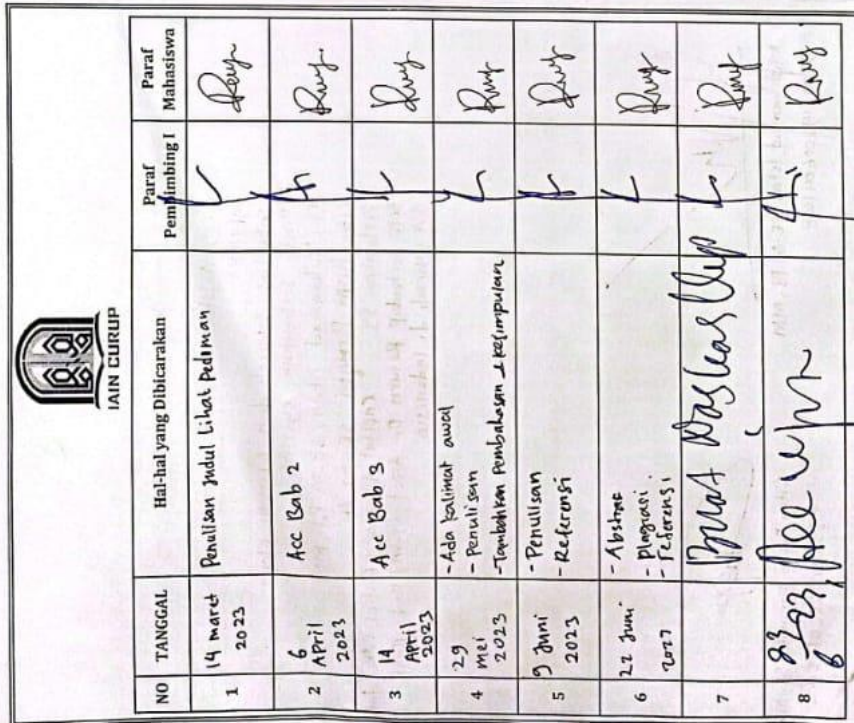 IAIN CURUP
NO TANGGAL Hal-hal yang Dibicarakan Paraf Pembimbing I Paraf Mahasiswa
1 14 maret 2023 Penulisan Judul Lihat Pedoman
2 6 April 2023 Acc Bab 2
3 14 April 2023 Acc Bab 3
4 29 mei 2023 - Ada kalimat awal
- Penulisan
- Tambahkan Pembahasan & kesimpulan
5 9 Juni 2023 - Penulisan
- Referensi
6 22 Juni - Abstrac
- Plagiasi
- referensi
7
8 Acc